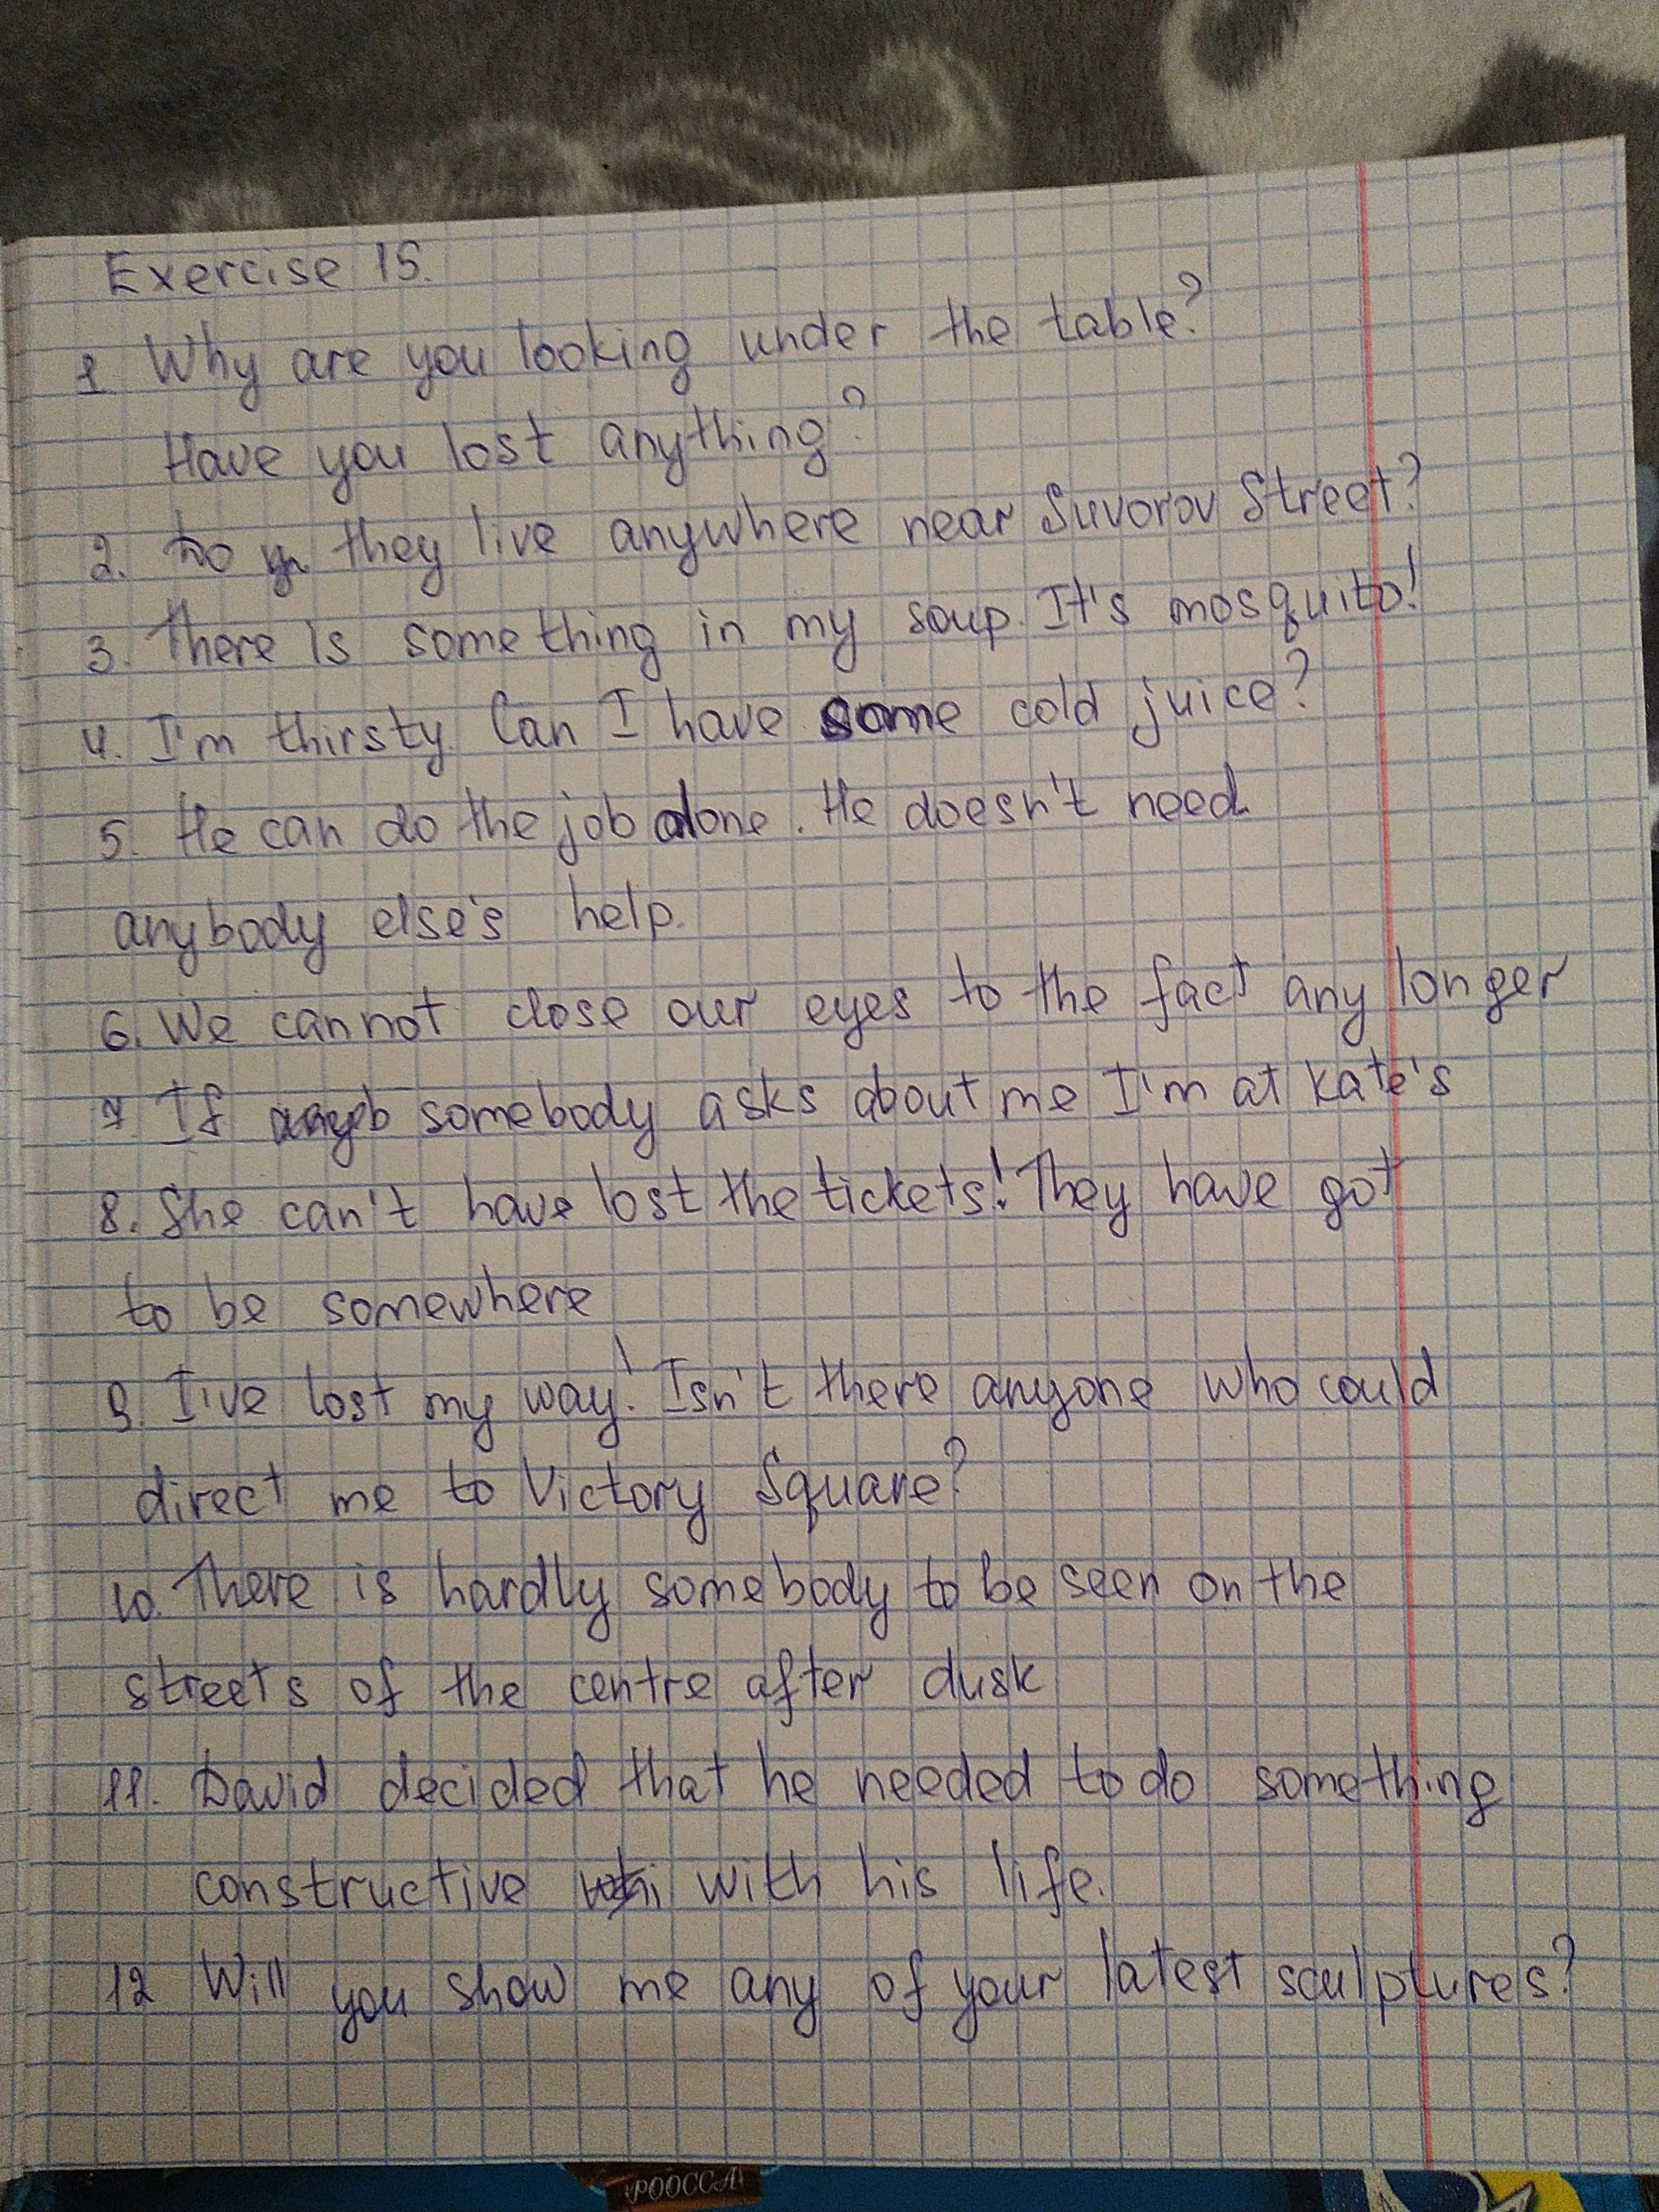 Exercise 15.
1. Why are you looking under the table?
Have you lost anything?
2. Do they live anywhere near Suvorov Street?
3. There is something in my soup. It's mosquito!
4. I'm thirsty. Can I have some cold juice?
5. He can do the job alone. He doesn't need
anybody else's help.
6. We cannot close our eyes to the fact any longer
7. If somebody asks about me I'm at Kate's
8. She can't have lost the tickets! They have got
to be somewhere
9. I've lost my way! Isn't there anyone who could
direct me to Victory Square?
10. There is hardly somebody to be seen on the
streets of the centre after dusk
11. David decided that he needed to do something
constructive with his life.
12 Will you show me any of your latest sculptures?
РОССА